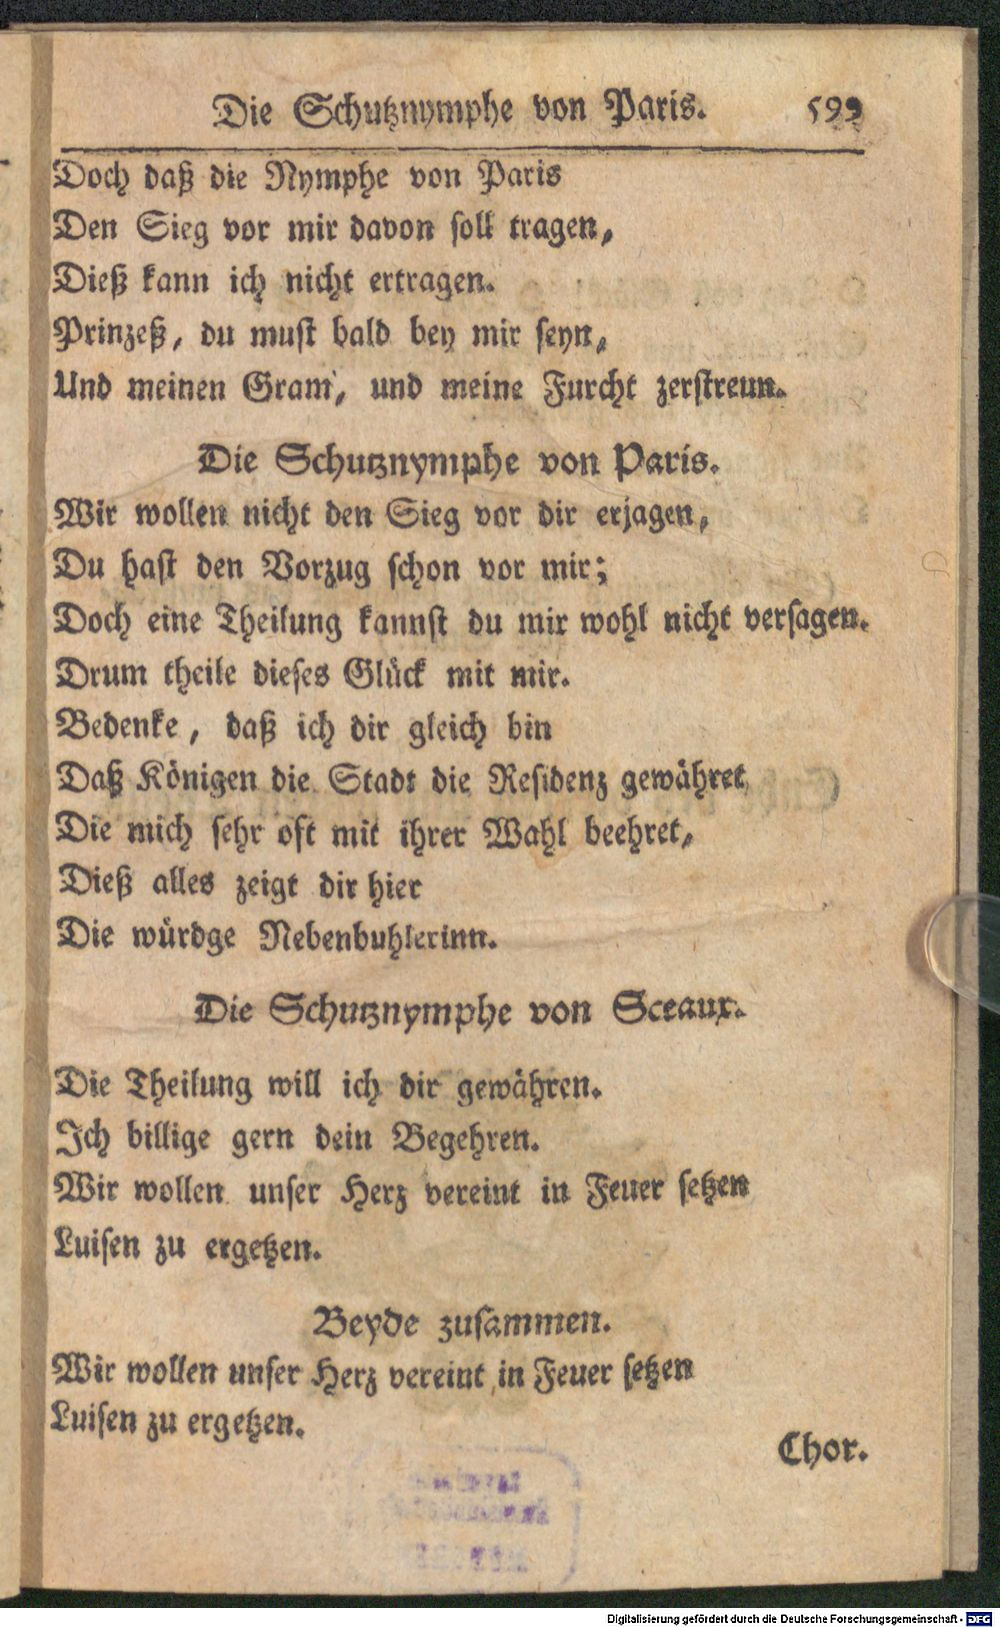 Die Schutznymphe von Paris. 599
Doch daß die Nymphe von Paris
Den Sieg vor mir davon soll tragen,
Dieß kann ich nicht ertragen.
Prinzeß, du must bald bey mir seyn,
Und meinen Gram, und meine Furcht zerstreun.
Die Schutznymphe von Paris.
Wir wollen nicht den Sieg vor dir erjagen,
Du hast den Vorzug schon vor mir;
Doch eine Theilung kannst du mir wohl nicht versagen.
Drum theile dieses Glück mit mir.
Bedenke, daß ich dir gleich bin
Daß Königen die Stadt die Residenz gewähret,
Die mich sehr oft mit ihrer Wahl beehret,
Dieß alles zeigt dir hier
Die würdge Nebenbuhlerinn.
Die Schutznymphe von Sceaux.
Die Theilung will ich dir gewähren.
Ich billige gern dein Begehren.
Wir wollen unser Herz vereint in Feuer setzen
Luisen zu ergetzen.
Beyde zusammen.
Wir wollen unser Herz vereint in Feuer setzen
Luisen zu ergetzen.
Chor.
Digitalisierung gefördert durch die Deutsche Forschungsgemeinschaft - DFG